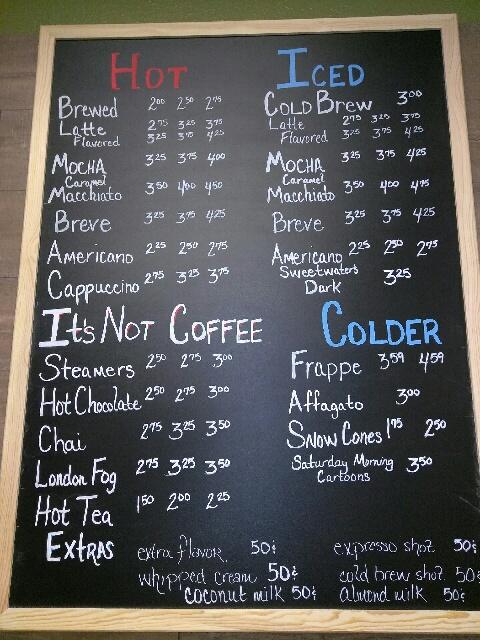 HOT
Brewed 2.00 2.50 2.75
Latte 2.75 3.25 3.75
Flavored 3.25 3.75 4.25
Mocha 3.25 3.75 4.00
Caramel
Macchiato 3.50 4.00 4.50
Breve 3.25 3.75 4.25
Americano 2.25 2.50 2.75
Cappuccino 2.75 3.25 3.75
ICED
Cold Brew 3.00
Latte 2.75 3.25 3.75
Flavored 3.25 3.75 4.25
Mocha 3.25 3.75 4.25
Caramel
Macchiato 3.50 4.00 4.75
Breve 3.25 3.75 4.25
Americano 2.25 2.50 2.75
Sweetwaters
Dark 3.25
Its Not Coffee
Steamers 2.50 2.75 3.00
Hot Chocolate 2.50 2.75 3.00
Chai 2.75 3.25 3.50
London Fog 2.75 3.25 3.50
Hot Tea 1.50 2.00 2.25
COLDER
Frappe 3.59 4.59
Affagato 3.00
Snow Cones 1.75 2.50
Saturday Morning
Cartoons 3.50
Extras
extra flavor 50¢
whipped cream 50¢
coconut milk 50¢
expresso shot 50¢
cold brew shot 50¢
almond milk 50¢